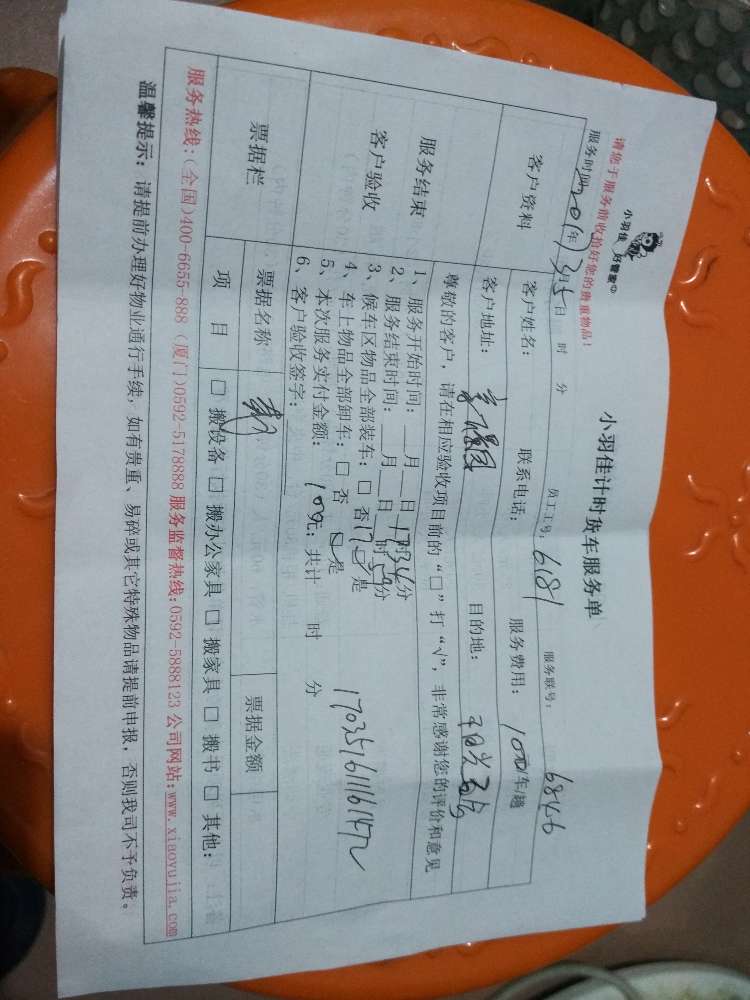 请您于服务前收拾好您的贵重物品!
小羽佳 好管家
小羽佳计时货车服务单
服务时间: 2017年3月5日 时 分
员工工号: 6181
服务联号: 6846
客户资料
客户姓名:
联系电话:
服务费用: 100元车/趟
客户地址:
目的地:
尊敬的客户,请在相应验收项目前的“□”打“√”,非常感谢您的评价和意见
服务结束
客户验收
1、服务开始时间: __月__日17时34分
2、服务结束时间: __月__日17时59分
3、候车区物品全部装车:□ 否 □是
4、车上物品全部卸车:□ 否 □是
5、本次服务实付金额: 100元;共计 时 分
6、客户验收签字:
票据栏
票据名称
票据金额
项 目
□ 搬设备 □ 搬办公家具 □ 搬家具 □ 搬书 □ 其他:
服务热线:(全国)400-6655-888 (厦门)0592-5178888 服务监督热线:0592-5888123 公司网站:www.xiaoyujia.com
温馨提示: 请提前办理好物业通行手续, 如有贵重、易碎或其它特殊物品请提前申报, 否则我司不予负责。